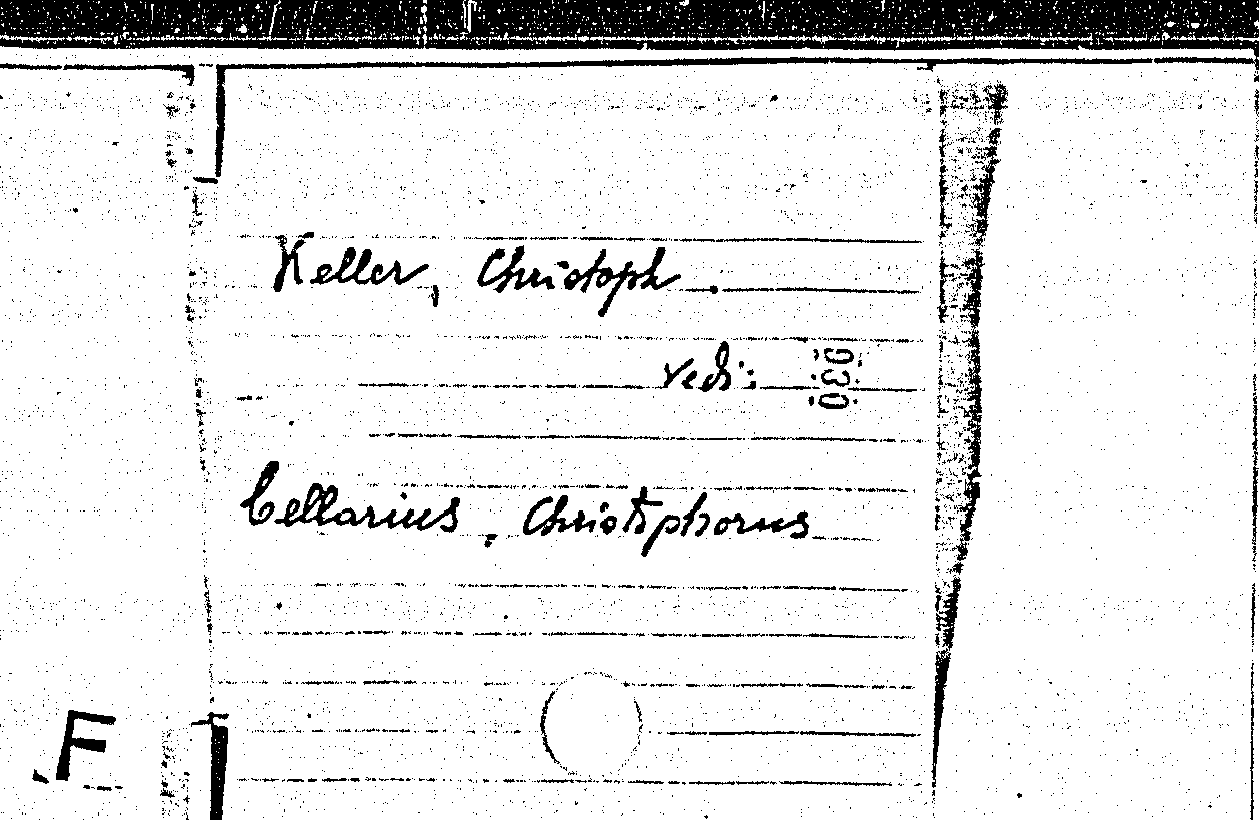 Keller, Christoph.
vedi:
030
Cellarius, Christophorus
F